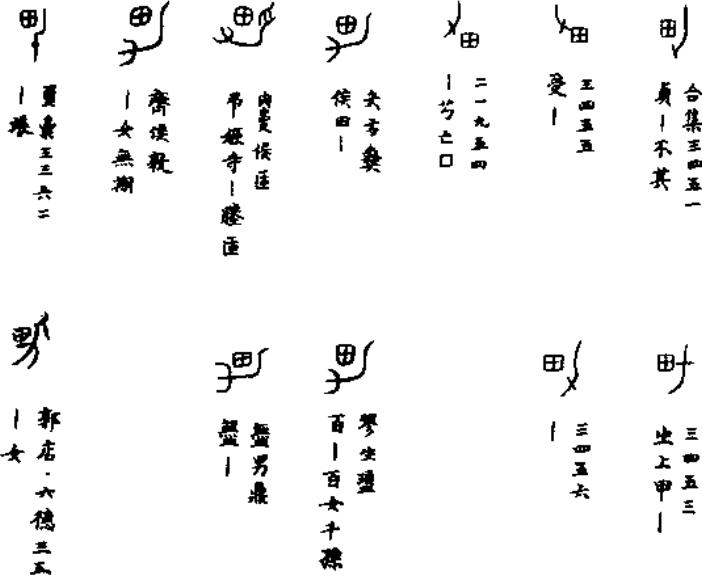 合集三四五一
貞丨不其
三四五五
受丨
二一九五四
丨芍亡囗
矢方彝
侯田丨
侯匜
弔姬寺丨媵匜
齊侯
丨女無期
璽彙五三六二
丨
三四五三
㞢上甲丨
三四五六
丨
翏生盨
百丨百女千孫
男鼎
丨
郭店·六德三五
丨女